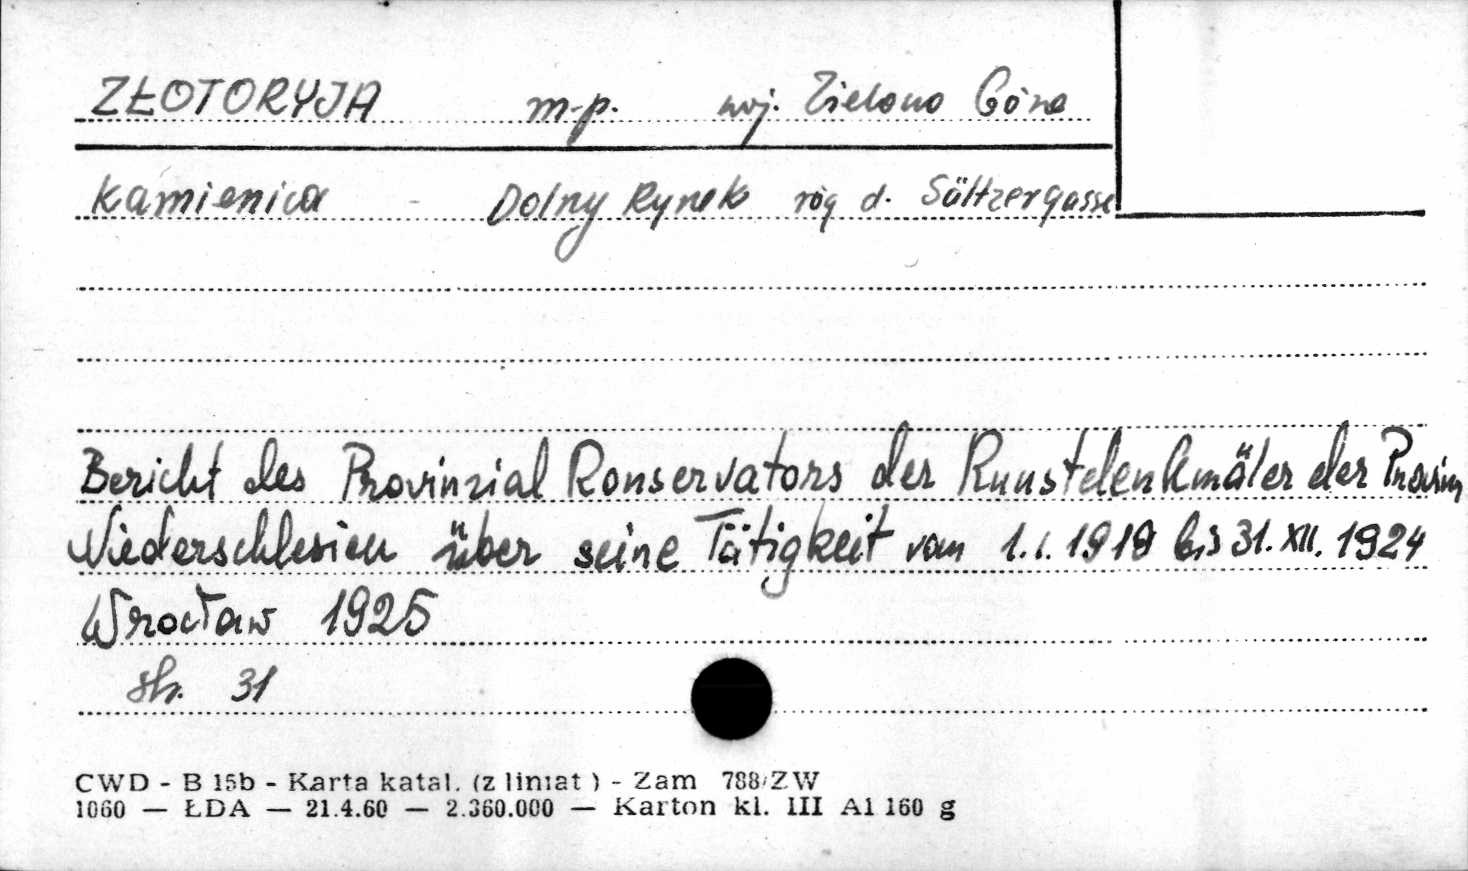 ZŁOTORYJA m-p. woj. Zielona Góra
Kamienica - Dolny Rynek róg d. Sältzergasse
Bericht des Provinzial Konservators der Kunstdenkmäler der Provinz
Niederschlesien über seine Tätigkeit vom 1.I.1919 bis 31.XII.1924
Wrocław 1925
str. 31
CWD - B 15b - Karta katal. (z liniat ) - Zam 788/ZW
1060 — ŁDA — 21.4.60 — 2.360.000 — Karton kl. III A1 160 g